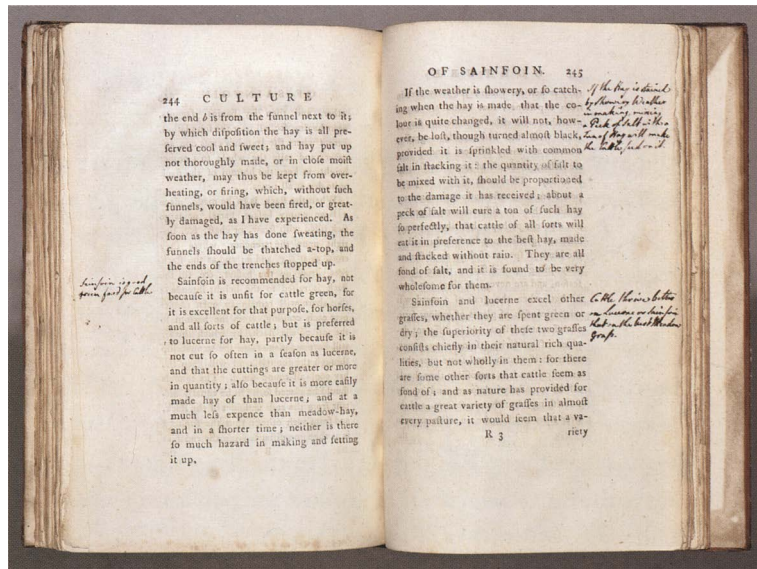 244 CULTURE
the end b is from the funnel next to it;
by which diſpoſition the hay is all pre-
ſerved cool and ſweet; and hay put up
not thoroughly made, or in cloſe moiſt
weather, may thus be kept from over-
heating, or firing, which, without ſuch
funnels, would have been fired, or great-
ly damaged, as I have experienced. As
ſoon as the hay has done ſweating, the
funnels ſhould be thatched a-top, and
the ends of the trenches ſtopped up.
Sainfoin is recommended for hay, not
becauſe it is unfit for cattle green, for
it is excellent for that purpoſe, for horſes,
and all ſorts of cattle; but is preferred
to lucerne for hay, partly becauſe it is
not cut ſo often in a ſeaſon as lucerne,
and that the cuttings are greater or more
in quantity; alſo becauſe it is more eaſily
made hay of than lucerne; and at a
much leſs expence than meadow-hay,
and in a ſhorter time; neither is there
ſo much hazard in making and ſetting
it up.
Sainfoin is good
green food for Cattle
OF SAINFOIN. 245
If the weather is ſhowery, or ſo catch-
ing when the hay is made that the co-
lour is quite changed, it will not, how-
ever, be loſt, though turned almoſt black,
provided it is ſprinkled with common
ſalt in ſtacking it: the quantity of ſalt to
be mixed with it, ſhould be proportioned
to the damage it has received; about a
peck of ſalt will cure a ton of ſuch hay
ſo perfectly, that cattle of all ſorts will
eat it in preference to the beſt hay, made
and ſtacked without rain. They are all
fond of ſalt, and it is found to be very
wholeſome for them.
Sainfoin and lucerne excel other
graſſes, whether they are ſpent green or
dry; the ſuperiority of theſe two graſſes
conſiſts chiefly in their natural rich qua-
lities, but not wholly in them: for there
are ſome other ſorts that cattle ſeem as
fond of; and as nature has provided for
cattle a great variety of graſſes in almoſt
every paſture, it would ſeem that a va-
R 3 riety
If the Hay is stained
by Showery Weather
in making, mixing
a Peck of Salt with a
Tun of Hay will make
the Cattle feed on it.
Cattle thrive better
on Lucerne or Sainfoin
than on the best Meadow
Graſs.